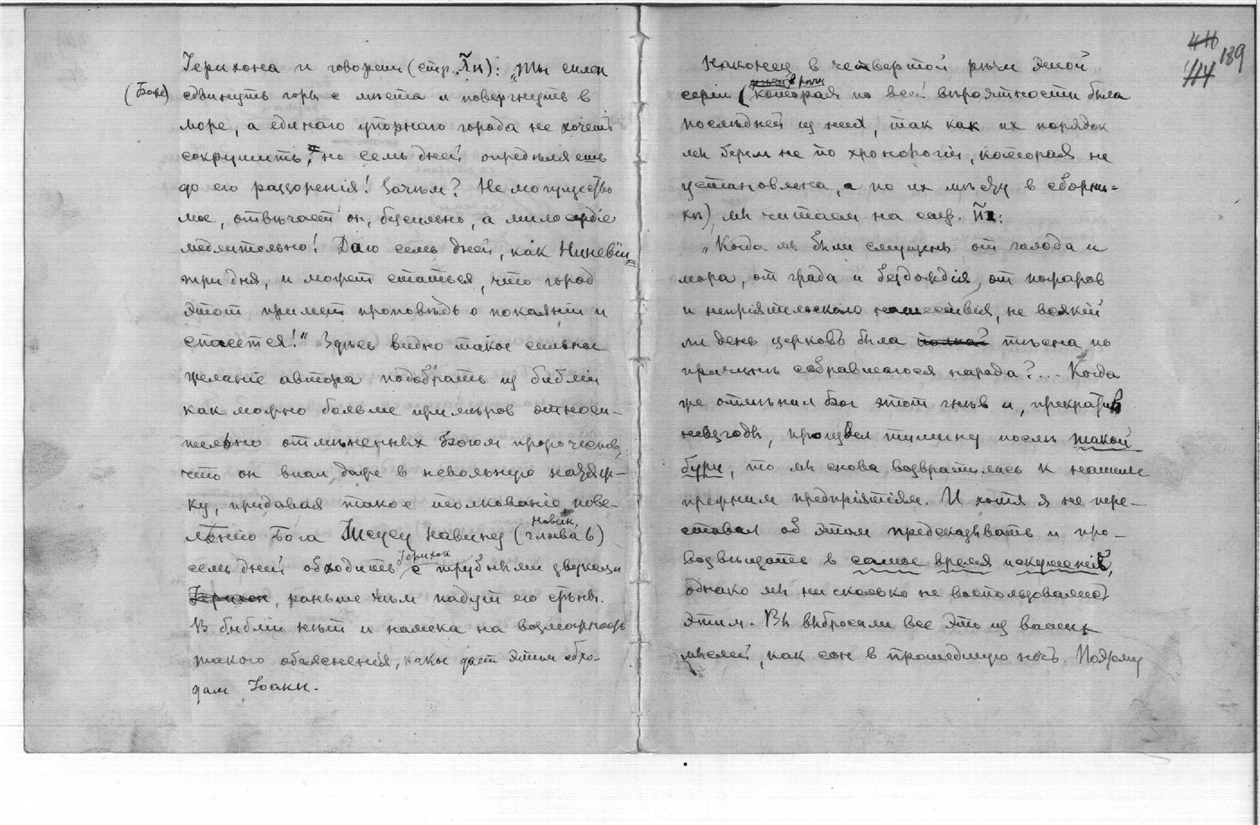 Іерихона и говорит (стр. П҃н): „Ты силен
(Боже) сдвинуть горы с мѣста и повергнуть в
море, а единаго упорнаго города не хочешь
сокрушить, но семь дней опредѣляешь
до его разоренія! Зачѣм? Не могущество
мое, отвѣчает он, безсильно, а милосердіе
медлительно! Даю семь дней, как Ниневіи
три дня, и может статься, что город
этот примет проповѣдь о покаяніи и
спасется!" Здѣсь видно такое сильное
желаніе автора подобрать из библіи
как можно больше примѣров относи-
тельно отмѣненных Богом пророчеств,
что он впал даже в невольную натяж-
ку, придавая такое толкованіе пове-
лѣнію Бога Іисусу Навину (Навин, глава 6)
семь дней обходить Іерихон с трубными звуками
Іерихон, раньше чѣм падут его стѣны.
В библіи нѣт и намека на возможность
такого объясненія, какое дает этим обхо-
дам Іоанн.
411 189
114
Наконец в четвертой рѣчи этой
серіи (которая по всей вѣроятности была
послѣдней из них, так как их порядок
мы берем не по хронологіи, которая не
установлена, а по их мѣсту в сборни-
кѣ) мы читаем на стр.
„Когда мы были смущены от голода и
мора, от града и бездождія, от пожаров
и непріятельскаго нашествія, не всякій
ли день церковь была полна тѣсна по
причинѣ собравшагося народа?... Когда
же отмѣнил Бог этот гнѣв и, прекратив
невзгоды, произвел тишину послѣ такой
бури, то мы снова возвратились к нашим
прежним предпріятіям. И хотя я не пере-
ставал об этом предсказывать и про-
возвѣщать в самое время искушеній,
однако мы нисколько не воспользовались
этим. Вы выбросили все это из ваших
мыслей, как сон в прошедшую ночь. Поэтому